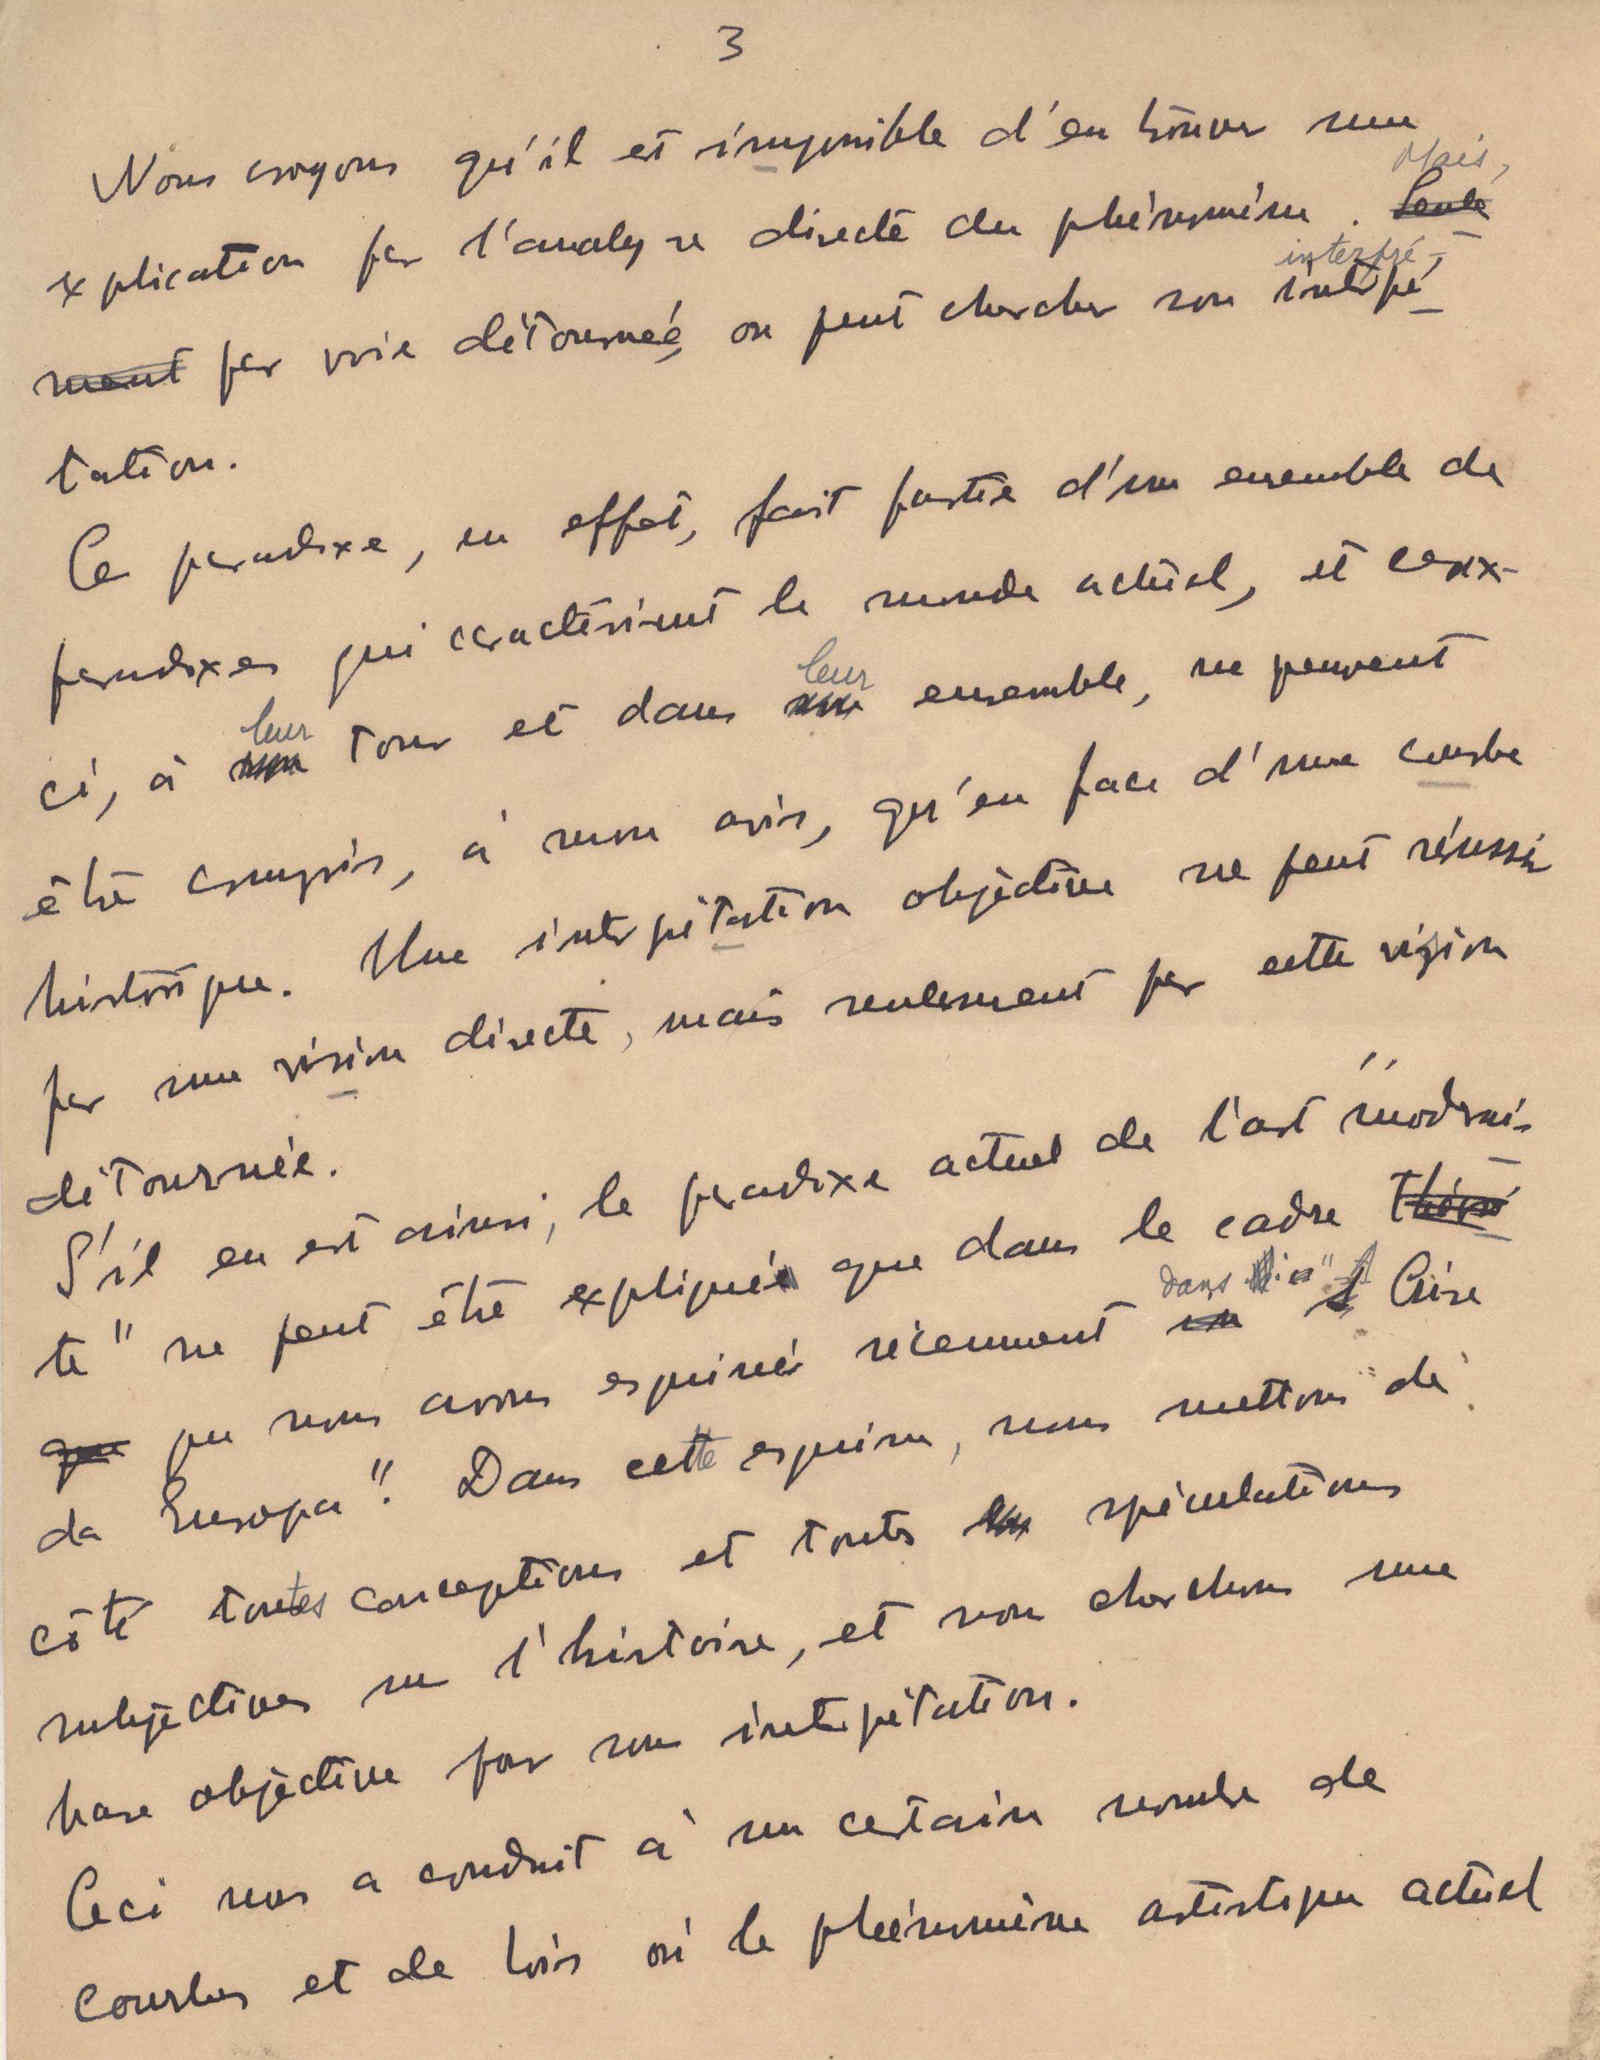 3
Nous croyons qu'il est impossible d'en trouver une
Mais,
explication par l'analyse directe du phénomène. Seule
interpré-
ment par voie détournée, on peut chercher son interpé
tation.
Ce paradoxe, en effet, fait partie d'un ensemble de
paradoxes qui caractérisent le monde actuel, et ceux-
leur leur
ci, à son tour et dans son ensemble, ne peuvent
être compris, à mon avis, qu'en face d'une courbe
historique. Une interpétation objective ne peut réussir
par une vision directe, mais seulement par cette vision
détournée.
S'il en est ainsi, le paradoxe actuel de l'art "moderni-
te" ne peut être expliqué que dans le cadre
dans
que que nous avons esquissé récemment en Crise
da Europa". Dans cette esquisse, nous mettons de
côté toutes conceptions et toutes les spéculations
subjectives sur l'histoire, et nous cherchons une
base objective pour son interpétation.
Ceci nous a conduit à un certain nombre de
courbes et de lois où le phénomène artistique actuel